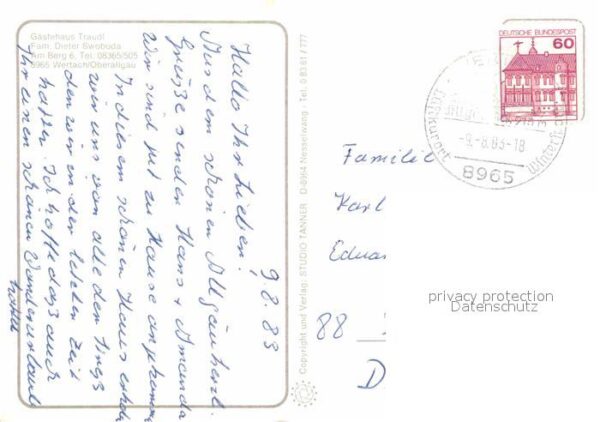 Gästehaus Traudl
Fam. Dieter Swoboda
Am Berg 6, Tel. 08365/505
8965 Wertach/Oberallgäu
9.8.83
Hallo Ihr Lieben!
Aus dem schönen Allgäu herzl.
Grüße senden Hans + Amanda
Wir sind gut zu Hause angekommen
In diesem schönen Haus erholen
wir uns von alle den
den wir in der letzten Zeit
hatten. Ich hoffe daß auch
Ihr einen schönen Wanderurlaub
hattet
Copyright und Verlag: STUDIO TANNER D-8964 Nesselwang · Tel. 0 83 61 / 777
DEUTSCHE BUNDESPOST
60
-9.-8.83-18
8965
Luftkurort
Familie
Karl
Eduar
88
D
privacy protection
Datenschutz